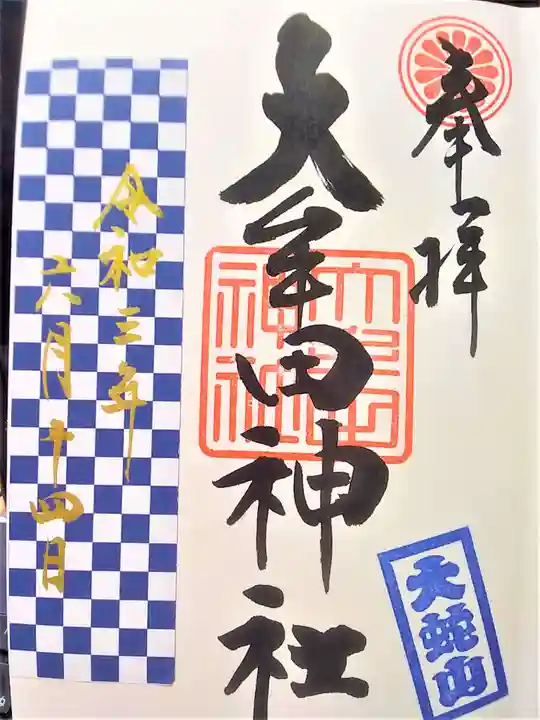 奉拝
大牟田神社
大牟田
神社
大蛇山
令和三年
六月十四日